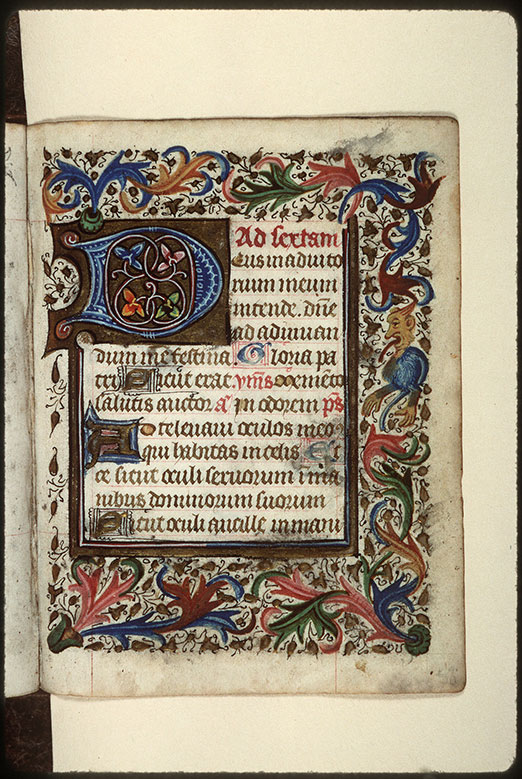 Ad sextam
Deus in adiuto
rium meum
intende. dñe
ad adiuuan
dum me festina Gloria pa
tri Sicut erat. ymñs Memẽto
salutis auctor a In odorem ps
Ad te leuaui oculos meos
qui habitas in celis Ec
ce sicut oculi seruorum i ma
nibus dominorum suorum
Sicut oculi ancille in manu